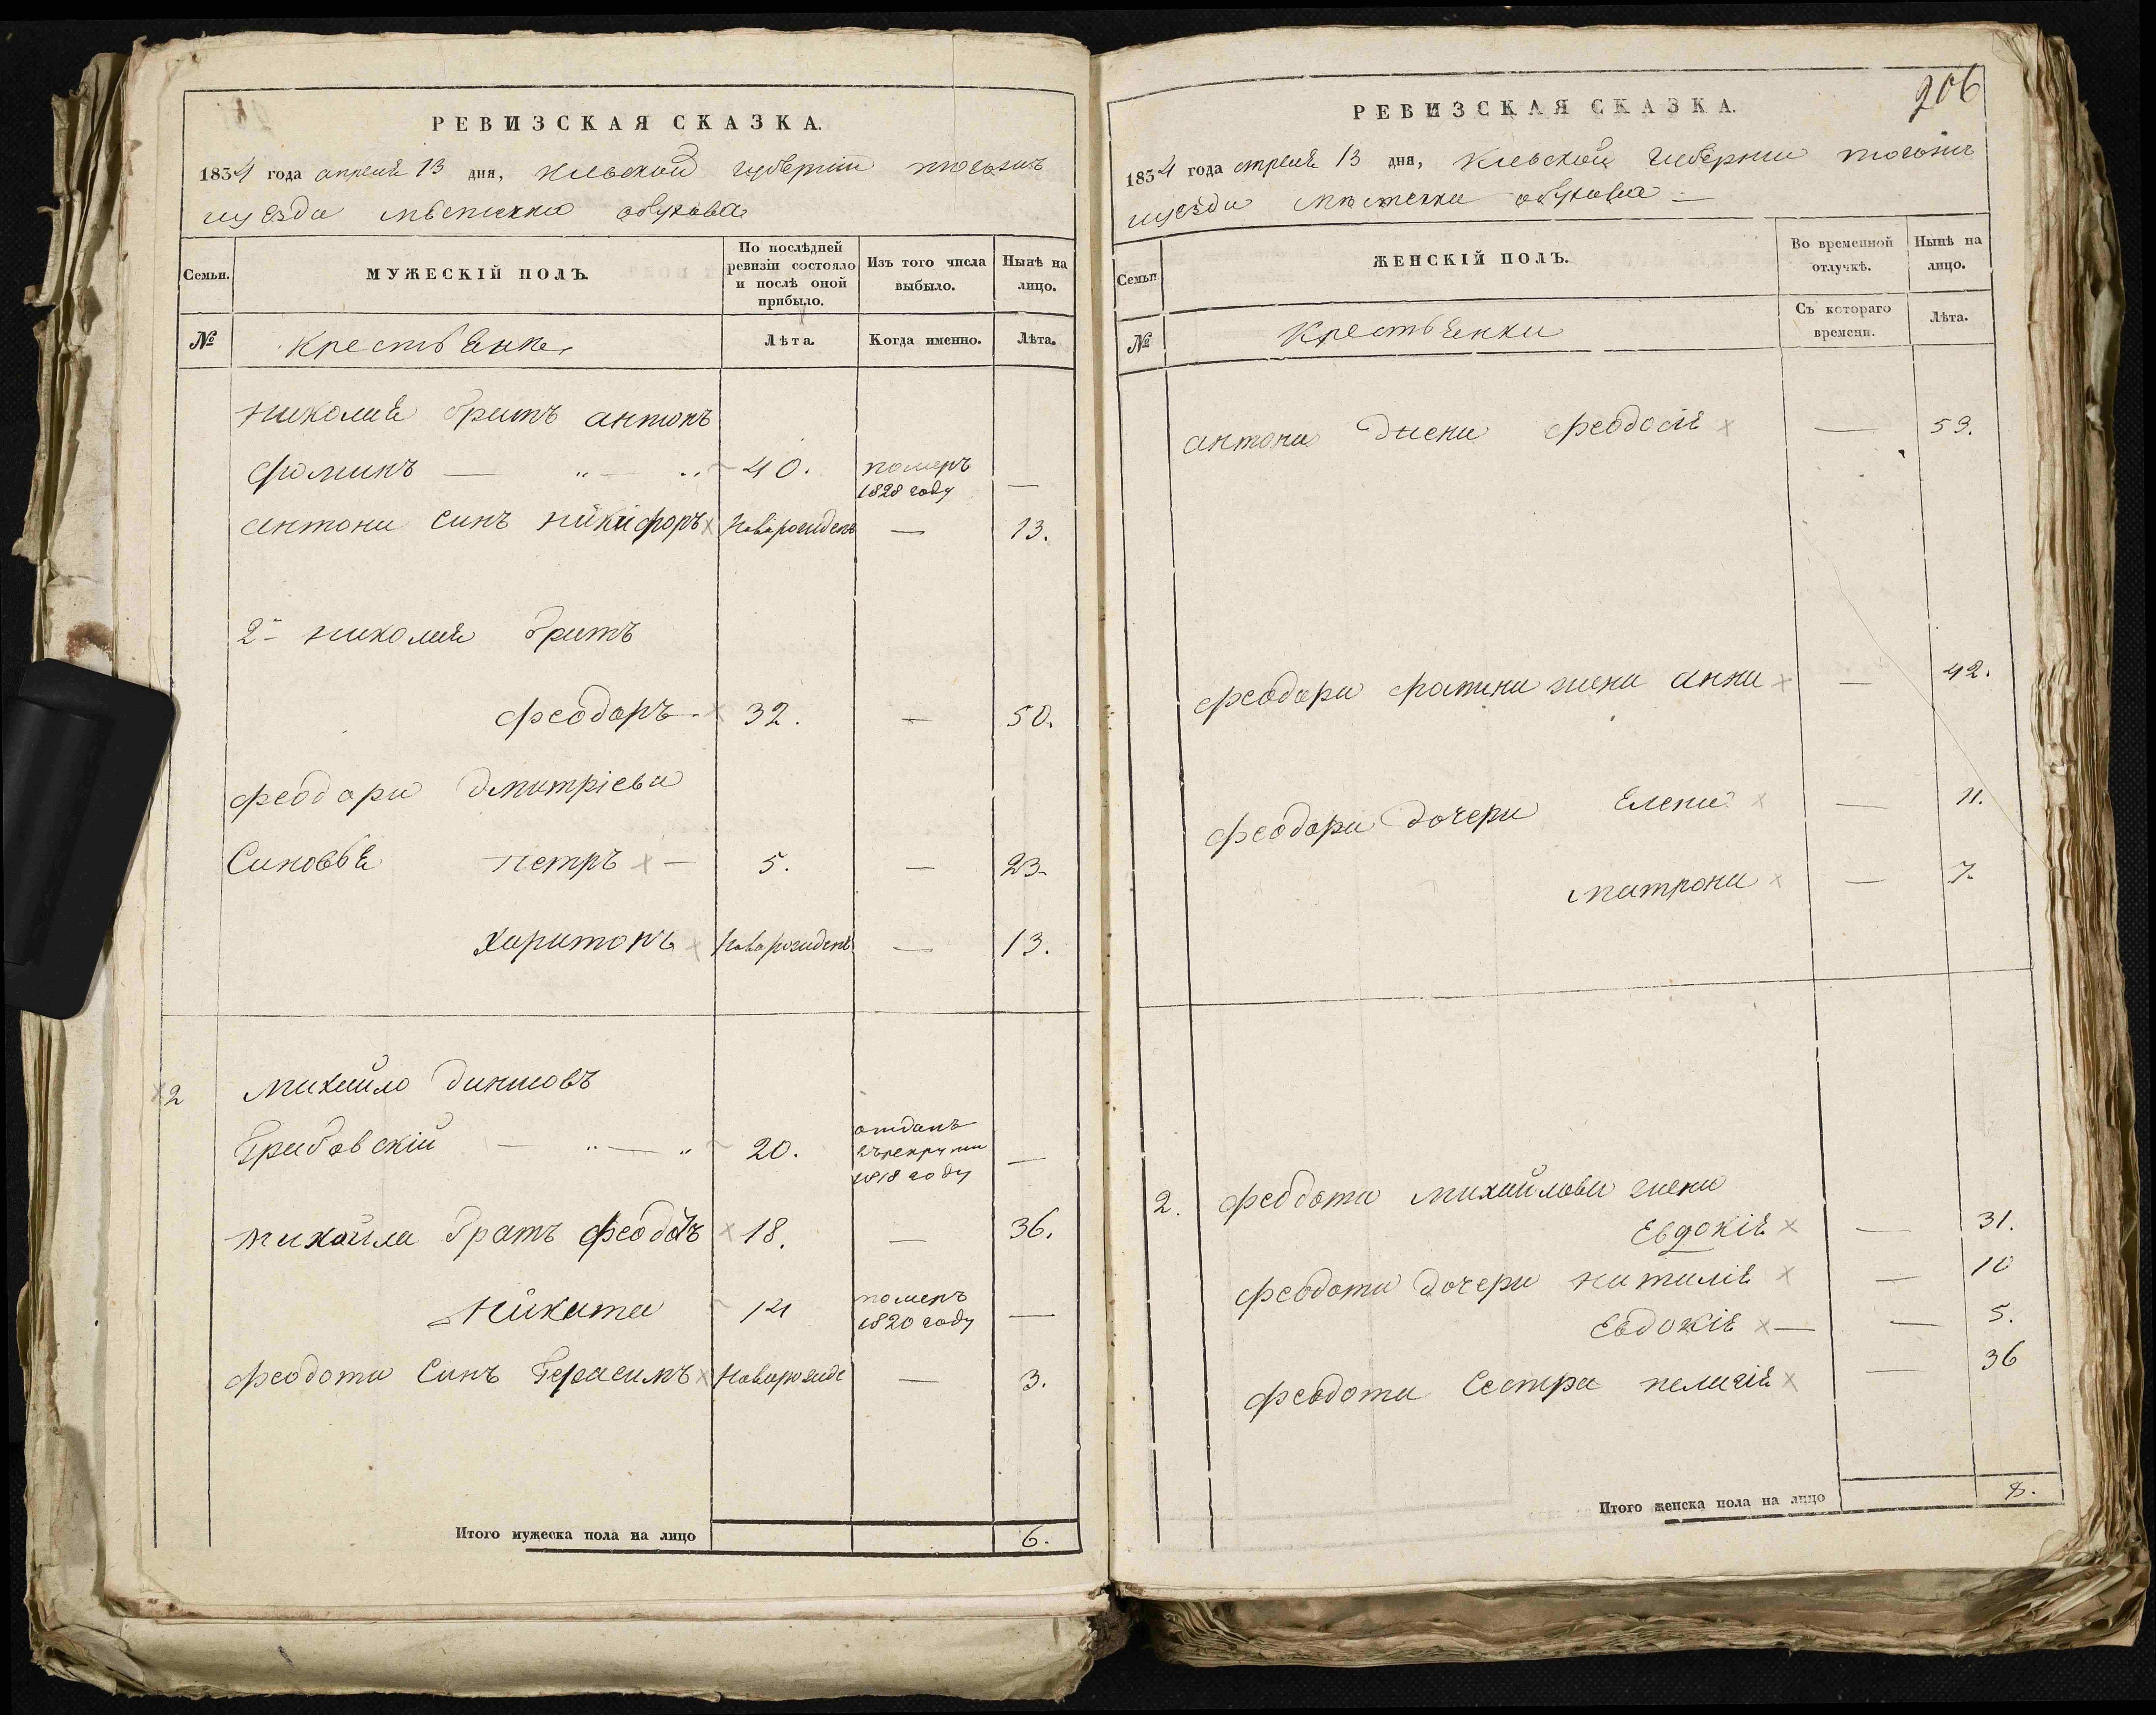 РЕВИЗСКАЯ СКАЗКА.
1834 года апреля 13 дня, Киевской губернии тогожъ
уезда местечка обухова
Семьи. МУЖЕСКІЙ ПОЛЪ. По послѣдней ревизіи состояло и послѣ оной прибыло. Изъ того числа выбыло. Нынѣ на лицо.
№ Крестьяне Лѣта. Когда именно. Лѣта.
николая братъ антонъ
фоминъ — 40. померъ 1828 году —
антона синъ никифоръ новорожденъ — 13.
2й николая братъ
феодоръ 32. — 50.
феодора дмитріева
Синовья петръ — 5. — 23.
харитонъ новорожденъ — 13.
2 михайло
Грибовскій — 20. отданъ 1818 году —
михайла братъ феодотъ 18. — 36.
никита 14 померъ 1820 году —
феодота Синъ Герасимъ новорожде — 3.
Итого мужеска пола на лицо 6.
206
РЕВИЗСКАЯ СКАЗКА.
1834 года апреля 13 дня, Киевской губернии тогожъ
уезда местечка обухова —
Семьи. ЖЕНСКІЙ ПОЛЪ. Во временной отлучкѣ. Нынѣ на лицо.
№ Крестьянки Съ котораго времени. Лѣта.
антона жена феодосія — 53.
феодора фомина жена анна — 42.
феодора дочери Елена — 11.
матрона — 7.
2. феодота михайлова жена
Евдокія — 31.
феодота дочери наталія — 10
Евдокія — — 5.
феодота Сестра пелагія — 36
Итого женска пола на лицо 8.